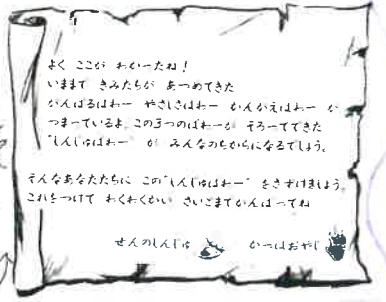 よく ここが わかーたね!
いままで きみたちが あつめてきた
がんばるぱわー やさしさぱわー かんがえぱわー が
つまっているよ。この3つのぱわーが そろってできた
"しんじゅぱわー" が みんなのちからになるでしょう。
そんなあなたたちに この"しんじゅぱわー" をさずけましょう。
これをつけて わくわくかい さいごまでがんばってね
せんのしんじゅ かっぱおやじ